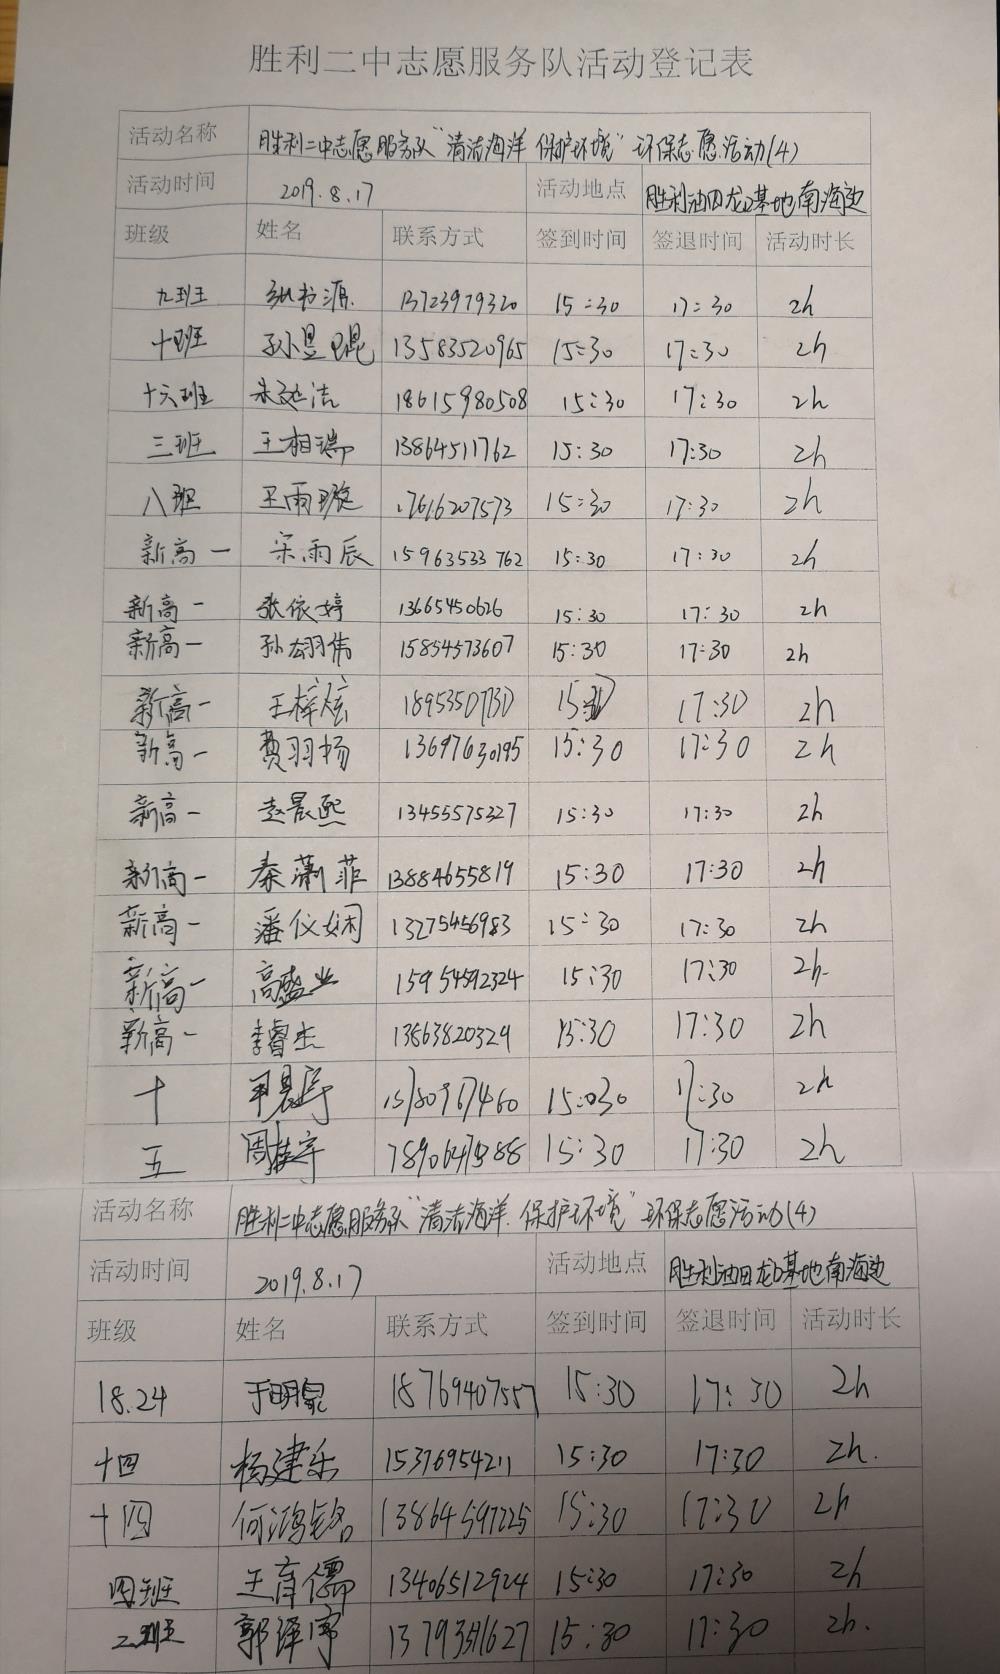 胜利二中志愿服务队活动登记表
活动名称 胜利二中志愿服务队“清洁海洋 保护环境”环保志愿活动(4)
活动时间 2019.8.17 活动地点 胜利油田龙口基地南海边
班级 姓名 联系方式 签到时间 签退时间 活动时长
九班 张书源 13723979320 15:30 17:30 2h
十班 孙昱焜 13583520965 15:30 17:30 2h
十六班 朱洁 18615980508 15:30 17:30 2h
三班 王相瑞 13864511762 15:30 17:30 2h
八班 王雨璇 17616207573 15:30 17:30 2h
新高一 宋雨辰 15963533762 15:30 17:30 2h
新高一 张依婷 13665450626 15:30 17:30 2h
新高一 孙翊伟 15854573607 15:30 17:30 2h
新高一 王梓炫 15:30 17:30 2h
新高一 费羽扬 13697630195 15:30 17:30 2h
新高一 赵晨熙 13455575327 15:30 17:30 2h
新高一 秦潇菲 13884655819 15:30 17:30 2h
新高一 潘仪娴 13275456983 15:30 17:30 2h
新高一 高盛业 15954592324 15:30 17:30 2h.
新高一 李睿杰 13563820329 15:30 17:30 2h
十 15:030 17:30 2h
五 周桂宇 15:30 17:30 2h
活动名称 胜利二中志愿服务队“清洁海洋.保护环境”环保志愿活动(4)
活动时间 2019.8.17 活动地点 胜利油田龙口基地南海边
班级 姓名 联系方式 签到时间 签退时间 活动时长
18.24 于明泉 18769407557 15:30 17:30 2h
十四 杨建乐 15376954211 15:30 17:30 2h.
十四 何鸿铭 13864597225 15:30 17:30 2h
四班 王育儒 13406512924 15:30 17:30 2h
二班 郭泽宇 15:30 17:30 2h.